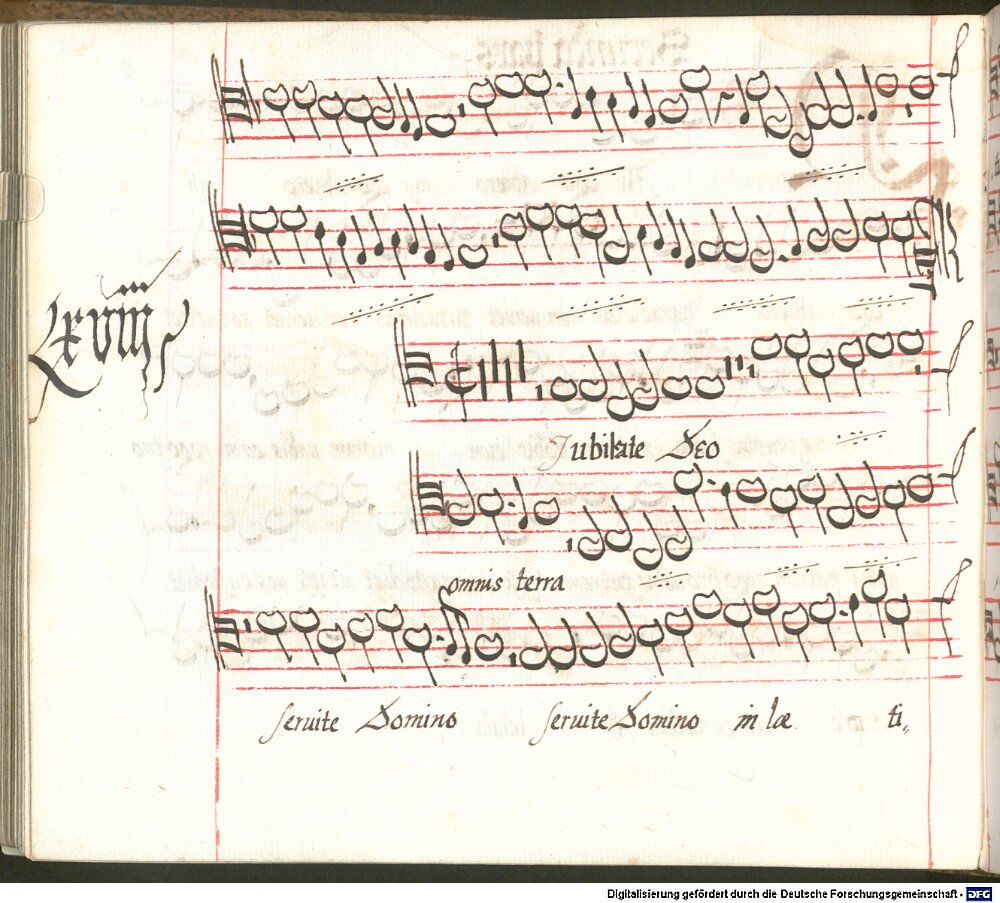 Lxviij
Jubilate Deo
omnis terra
seruite Domino seruite Domino in læ ti,,
Digitalisierung gefördert durch die Deutsche Forschungsgemeinschaft - DFG